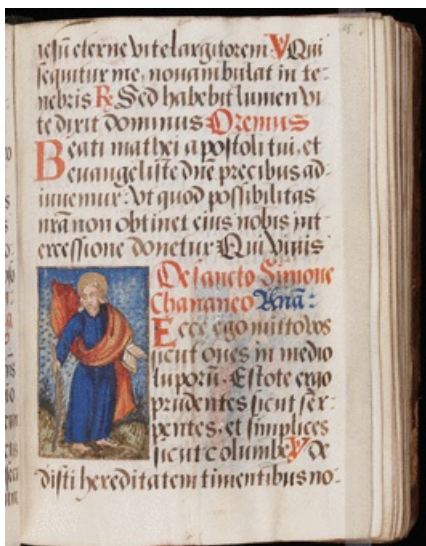 iesũ eterne vite largitorem V Qui
sequitur me, non ambulat in te-
nebris R. Sed habebit lumen vi
te dixit dominus Oremus
Beati mathei apostoli tui, et
euangeliste dñe precibus ad-
iuuemur: Vt quod possibilitas
nr̃a non obtinet eius nobis int
ercessione donetur Qui viuis
De sancto Simone
Chananeo Anã:
Ecce ego mitto vos
sicut oues in medio
luporũ. Estote ergo
prudentes sicut ser-
pentes, et simplices
sicut columbe V de
disti hereditatem timentibus no-